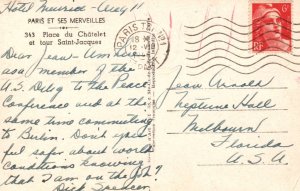 Hotel Meurice - Aug 11
PARIS ET SES MERVEILLES
343 Place du Châtelet
et tour Saint-Jacques
Dear Jean - Am here
as a member of the
U.S. Del'g to the Peace
Conference and at the
same time commuting
to Berlin. Don't you
feel safer about world
conditions knowing
that I am on the job?
Dick Spencer
PARIS
18
12
6F
RF
Jean Arnold
Neptune Hall
Melbourne
Florida
U.S.A